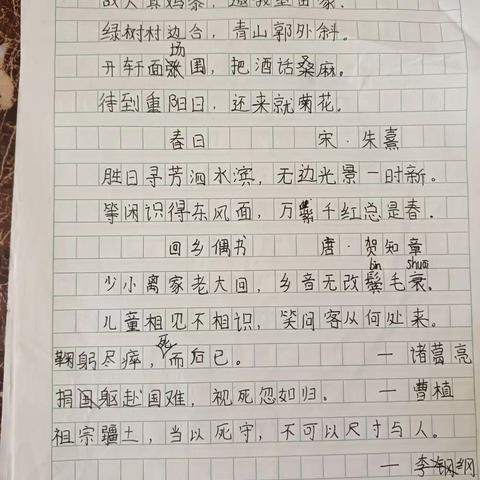 故人具鸡黍，邀我至田家。
绿树村边合，青山郭外斜。
开轩面场圃，把酒话桑麻。
待到重阳日，还来就菊花。
春日 宋·朱熹
胜日寻芳泗水滨，无边光景一时新。
等闲识得东风面，万紫千红总是春。
回乡偶书 唐·贺知章
bìn shuāi
少小离家老大回，乡音无改鬓毛衰。
儿童相见不相识，笑问客从何处来。
鞠躬尽瘁，死而后已。 — 诸葛亮
捐躯赴国难，视死忽如归。 — 曹植
祖宗疆土，当以死守，不可以尺寸与人。
— 李纲